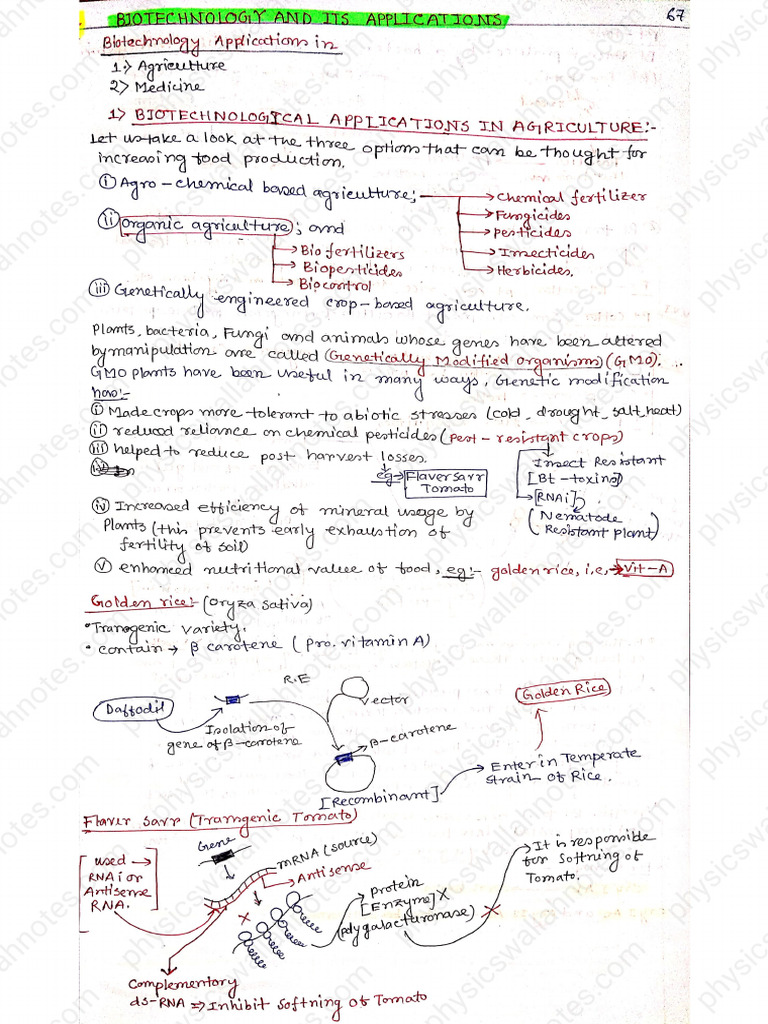 BIOTECHNOLOGY AND ITS APPLICATIONS
67
Biotechnology Applications in
1.) Agriculture
2) Medicine
1) BIOTECHNOLOGICAL APPLICATIONS IN AGRICULTURE:-
Let us take a look at the three options that can be thought for
increasing food production.
(i) Agro-chemical based agriculture;
→ chemical fertilizer
→ Fungicides
→ pesticides
→ Insecticides
→ Herbicides.
(ii) organic agriculture; and
→ Bio fertilizers
→ Biopesticides
→ Biocontrol
(iii) Genetically engineered crop-based agriculture.
Plants, bacteria, Fungi and animals whose genes have been altered
by manipulation are called (Genetically Modified organism) (GMO).
GMO plants have been useful in many ways, Genetic modification
has:-
(i) Made crops more tolerant to abiotic stresses (cold, drought, salt, heat)
(ii) reduced reliance on chemical pesticides (pest-resistant crops)
(iii) helped to reduce post harvest losses.
eg→ Flaver sarr
Tomato
Insect Resistant
[Bt-toxins]
→ [RNAi]
(Nematode
Resistant plant)
(iv) Increased efficiency of mineral usage by
Plants (this prevents early exhaustion of
fertility of soil)
(v) enhanced nutritional value of food, eg:- golden rice, i.e, → Vit-A
Golden rice:- (Oryza sativa)
• Transgenic variety.
• contain → β carotene (pro. vitamin A)
Daffodil
Isolation of
gene of β-carotene
R.E
vector
β-carotene
[Recombinant]
Enter in Temperate
strain of Rice.
Golden Rice
Flaver sarr (Transgenic Tomato)
used →
RNAi or
Antisense
RNA.
Gene
mRNA (source)
→ Antisense
X
protein
[Enzyme] X
(polygalacturonase)
X
→ It is responsible
for softning of
Tomato.
Complementary
ds-RNA ⇒ Inhibit softning of Tomato
physicswallahnotes.com